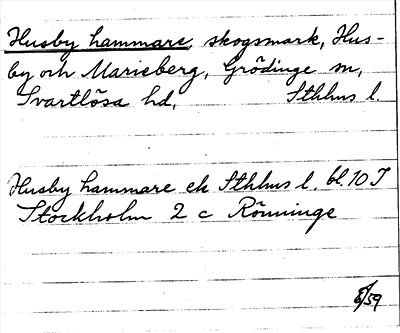 Husby hammare, skogsmark, Hus-
by och Marieberg, Grödinge sn,
Svartlösa hd, Sthlms l.
Husby hammare ek Sthlms l. bl. 10 I
Stockholm 2 c Rönninge
/59